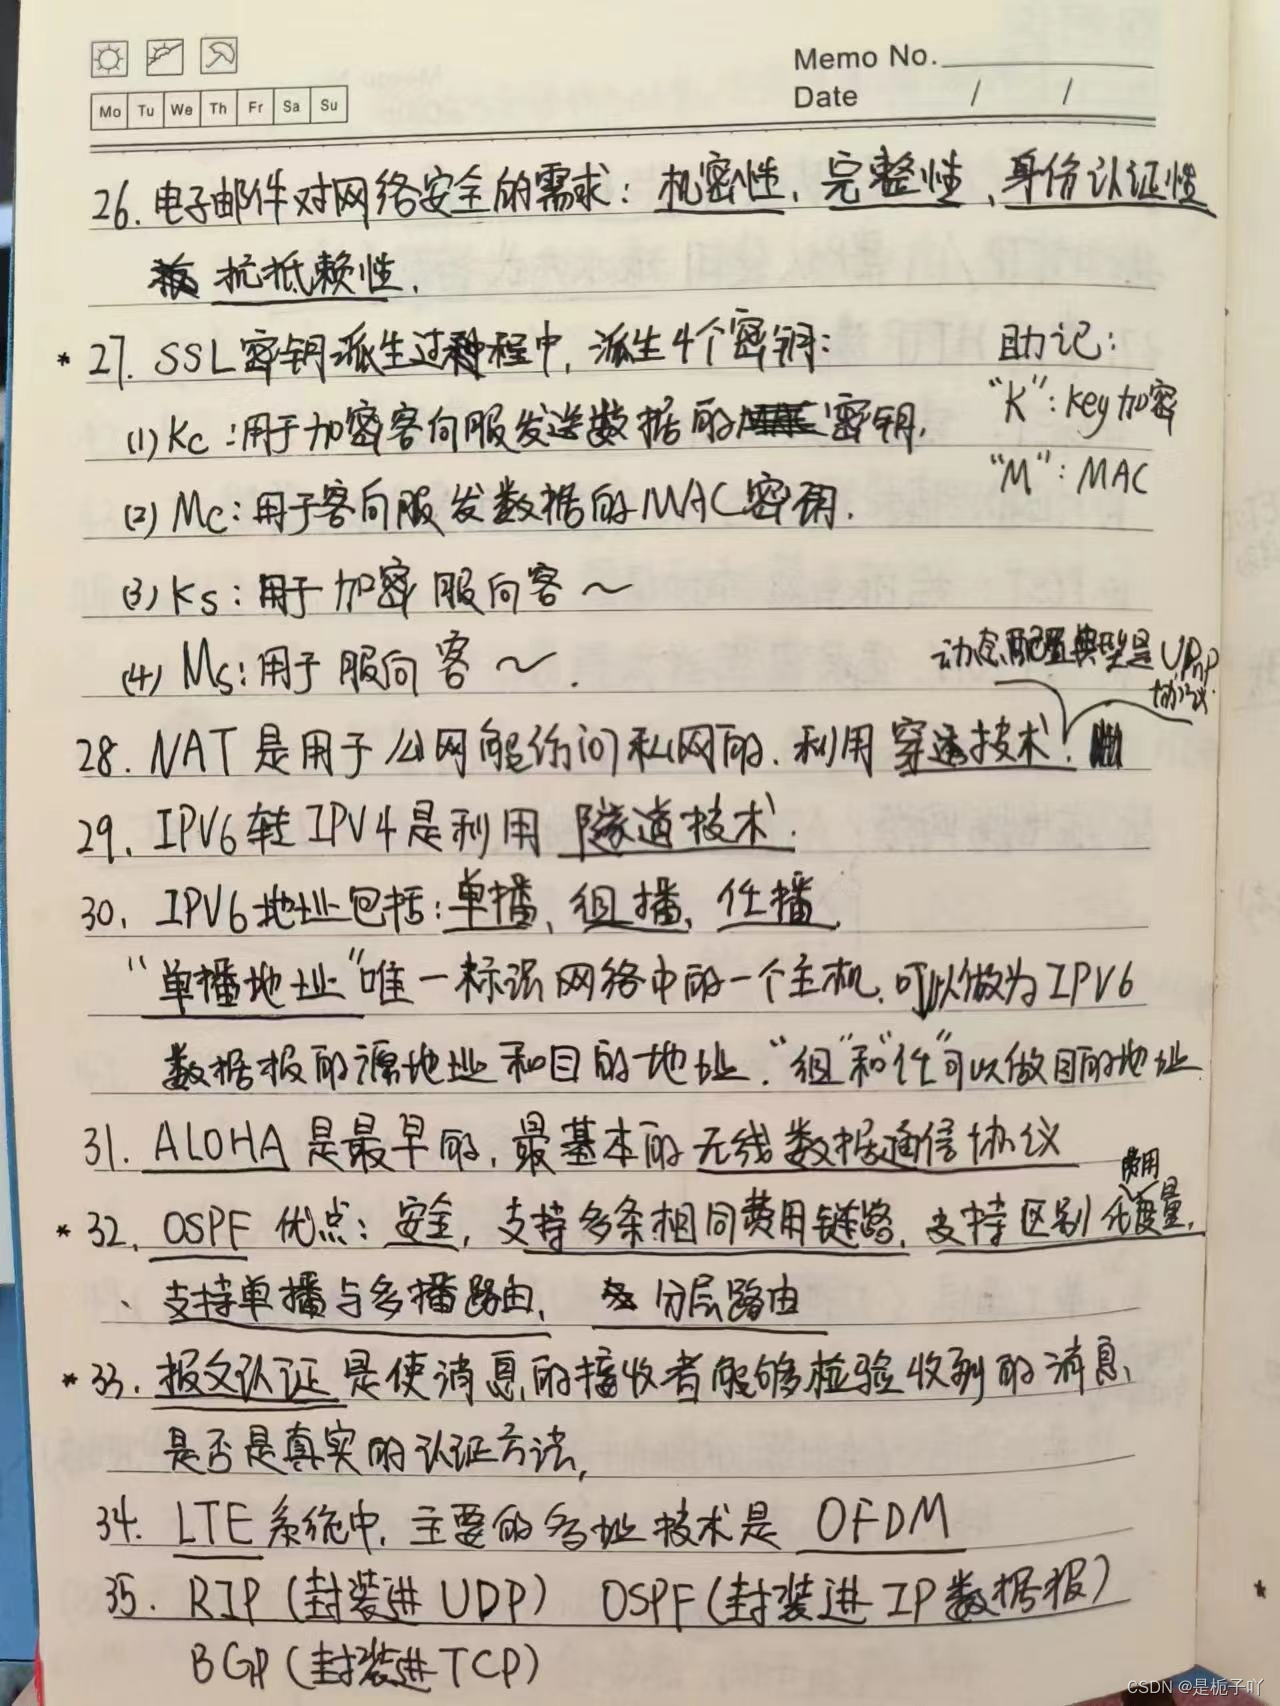 Memo No.
Mo Tu We Th Fr Sa Su
Date / /
26. 电子邮件对网络安全的需求：机密性、完整性、身份认证性
抗抵赖性.
* 27. SSL密钥派生过程中，派生4个密钥：
助记：
(1) Kc：用于加密客向服发送数据的密钥.
"K"：key加密
"M"：MAC
(2) Mc：用于客向服发数据的MAC密钥.
(3) Ks：用于加密服向客～
(4) Ms：用于服向客～.
动态配置典型是UPnP
协议
28. NAT是用于公网能访问私网的.利用穿透技术.
29. IPV6转IPV4是利用隧道技术.
30. IPV6地址包括：单播、组播、任播.
"单播地址"唯一标识网络中的一个主机.可以做为IPV6
数据报的源地址和目的地址."组"和"任"可以做目的地址
31. ALOHA是最早的，最基本的无线数据通信协议
费用
* 32. OSPF优点：安全，支持多条相同费用链路，支持区别化度量，
、支持单播与多播路由，分层路由
* 33. 报文认证是使消息的接收者能够检验收到的消息
是否是真实的认证方法，
34. LTE系统中，主要的多址技术是OFDM
35. RIP（封装进UDP） OSPF（封装进IP数据报）
BGP（封装进TCP）
CSDN @是栀子吖